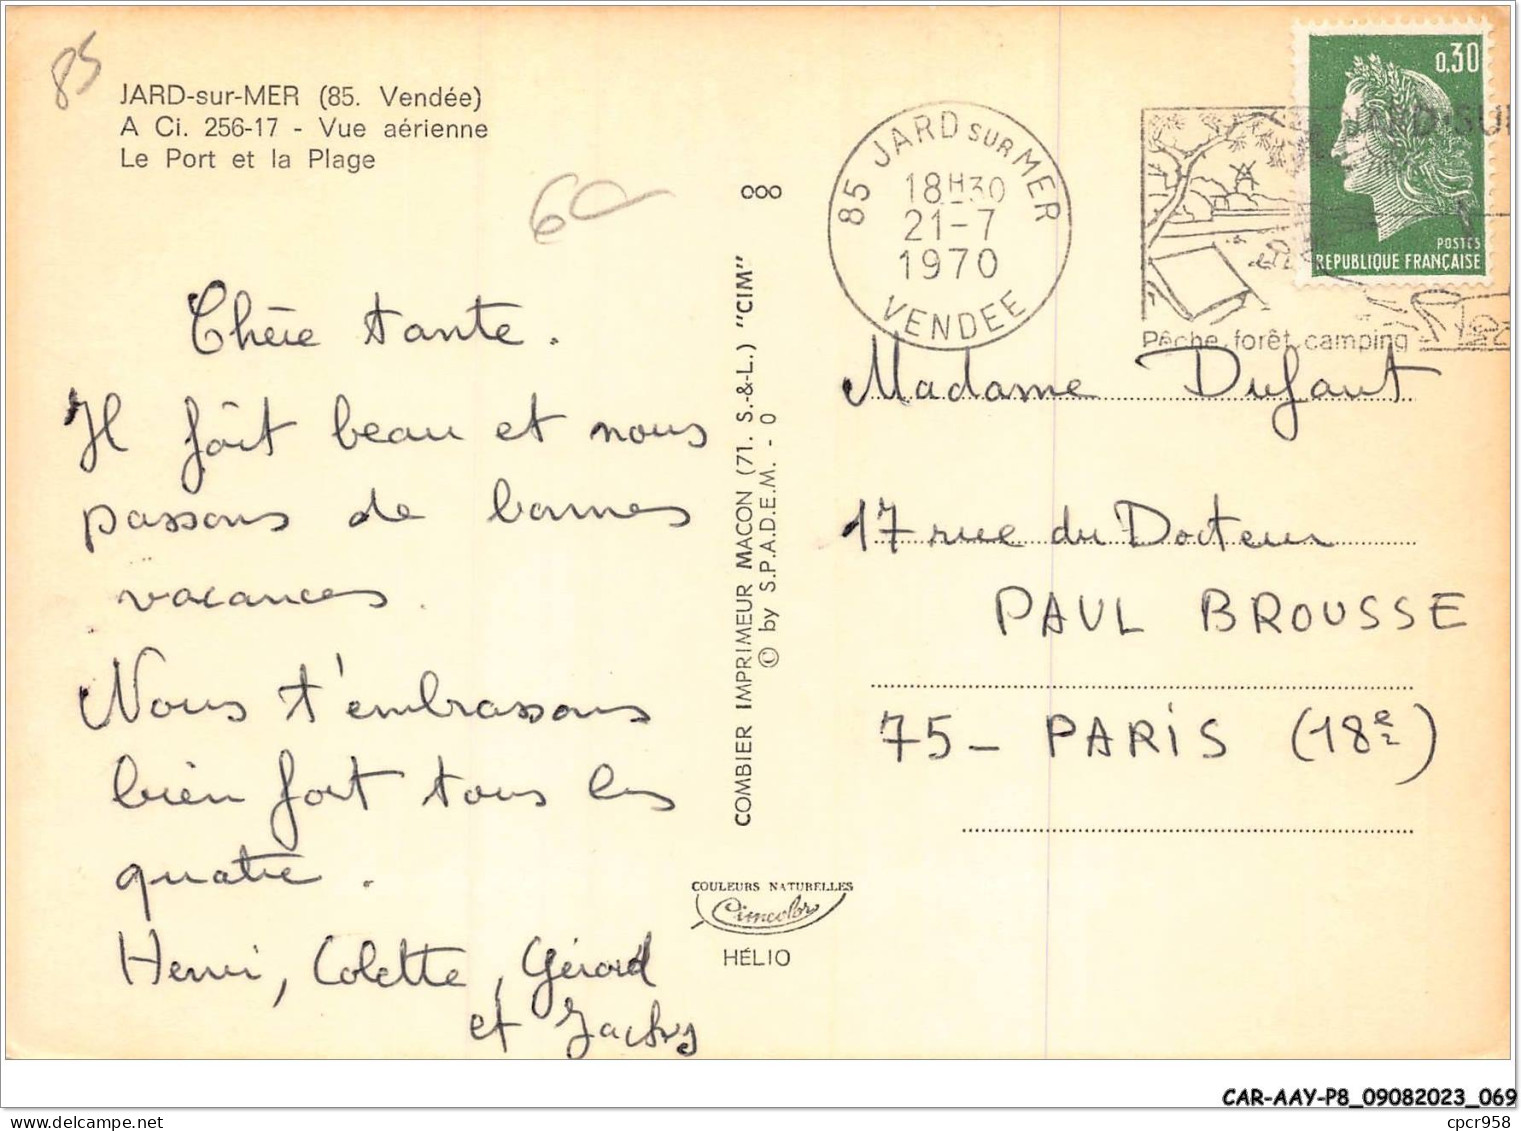 85
JARD-sur-MER (85. Vendée)
A Ci. 256-17 - Vue aérienne
Le Port et la Plage
60
Chère tante.
Il fait beau et nous
passons de bonnes
vacances.
Nous t'embrassons
bien fort tous les
quatre.
Henri, Colette, Gérard
et Jacky
000
COMBIER IMPRIMEUR MACON (71. S.-&-L.) "CIM"
© by S.P.A.D.E.M. - 0
COULEURS NATURELLES
Cimcolor
HÉLIO
85 JARD SUR MER
18H30
21-7
1970
VENDEE
JARD-SUR
Pêche, forêt, camping
0,30
POSTES
REPUBLIQUE FRANÇAISE
Madame Dufaut
17 rue du Docteur
PAUL BROUSSE
75 - PARIS (18e)
CAR-AAY-P8_09082023_069
cpcr958